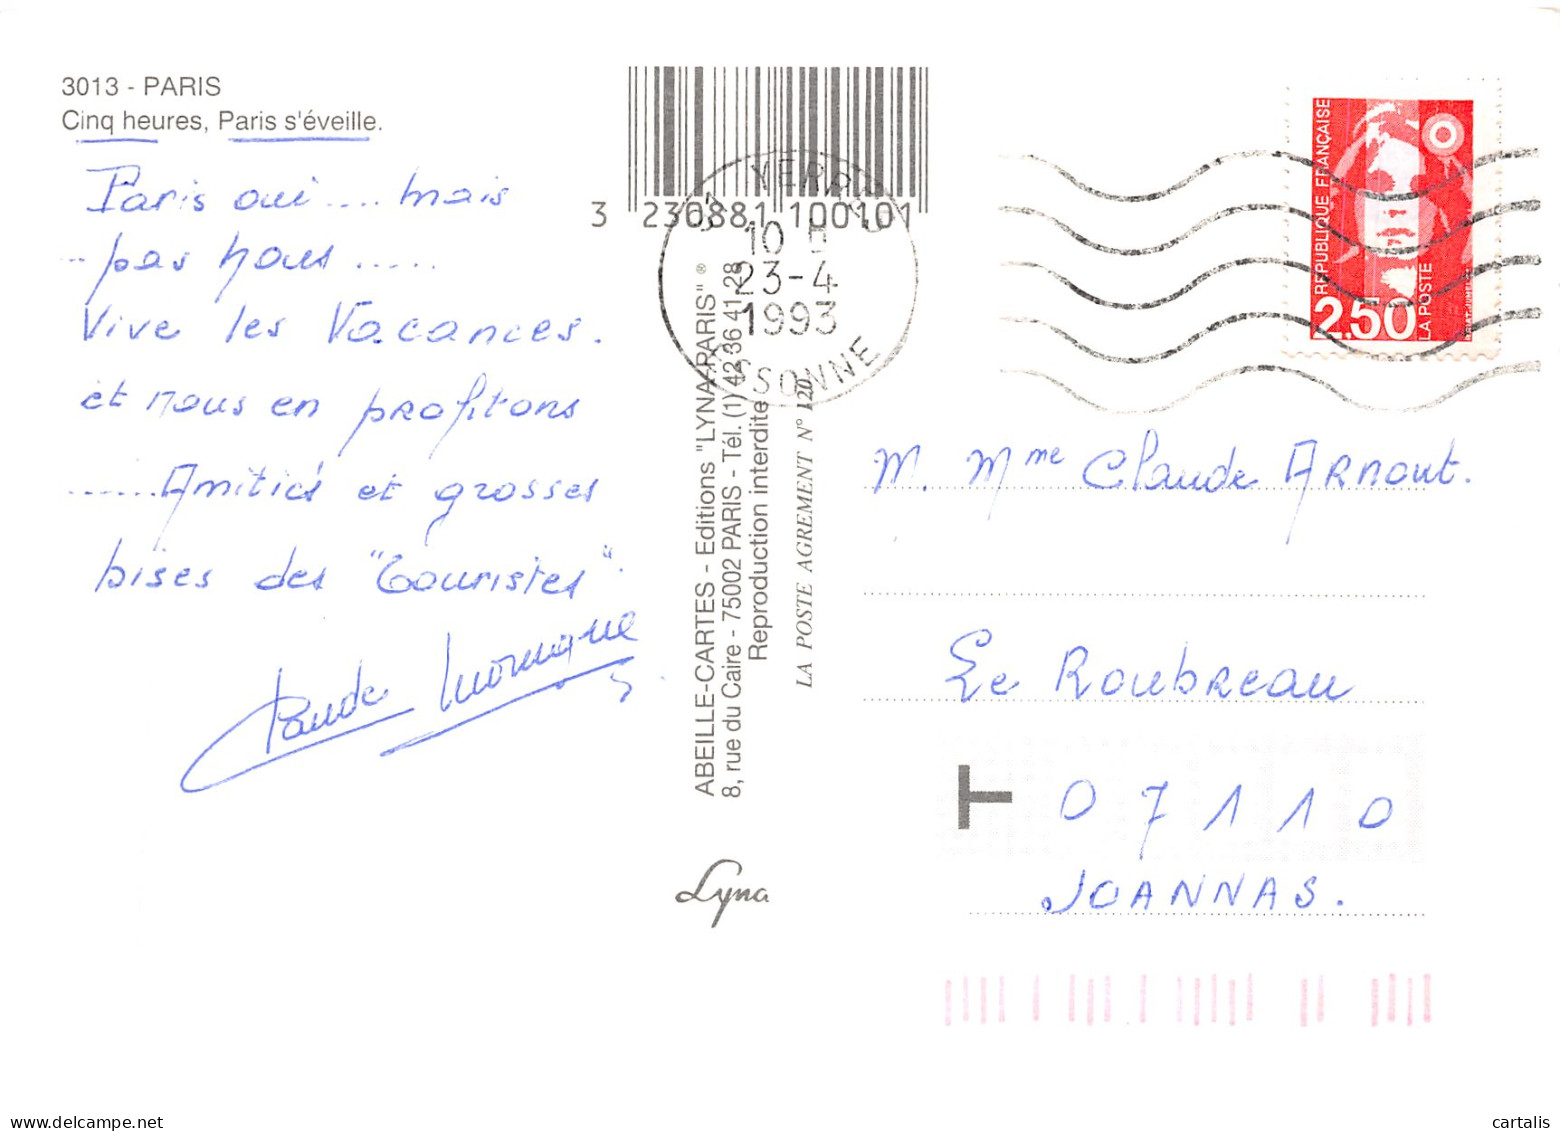 3013 - PARIS
Cinq heures, Paris s'éveille.
Paris oui .... mais
.. pas nous .....
Vive les Vacances.
et nous en profitons
....... Amitiés et grosses
bises des "Touristes".
Claude
3 230881 100101
YERRES
10 H
23-4
1993
ESSONNE
ABEILLE-CARTES - Editions "LYNA-PARIS" ®
8, rue du Caire - 75002 PARIS - Tél. (1) 42 36 41 28
Reproduction interdite
LA POSTE AGREMENT N° 120
Lyna
REPUBLIQUE FRANÇAISE
2,50
LA POSTE
M. Mme Claude ARNOUT.
Le Roubreau
T
07110
JOANNAS.
cartalis